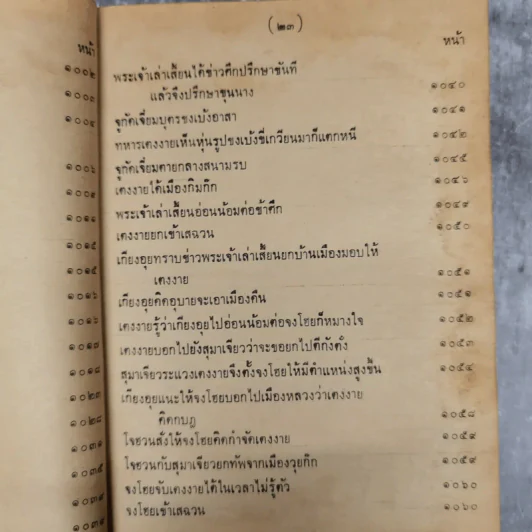 หน้า
๑๐๐๒
๑๐๐๔
๑๐๐๖
๑๐๐๙
๑๐๑๑
๑๐๑๕
๑๐๑๕
๑๐๑๖
๑๐๑๖
๑๐๑๗
๑๐๑๘
๑๐๒๓
๑๐๒๘
๑๐๓๑
๑๐๓๕
๑๐๓๙
๑๐๓๙
(๒๓)
หน้า
พระเจ้าเล่าเสี้ยนได้ข่าวศึกปรึกษาขันที
แล้วจึงปรึกษาขุนนาง ๑๐๔๐
จูกัดเจี๋ยมบุตรขงเบ้งอาสา ๑๐๔๑
ทหารเตงงายเห็นหุ่นรูปขงเบ้งขี่เกวียนมาก็แตกหนี ๑๐๔๒
จูกัดเจี๋ยมตายกลางสนามรบ ๑๐๔๕
เตงงายได้เมืองกิมก๊ก ๑๐๔๖
พระเจ้าเล่าเสี้ยนอ่อนน้อมต่อข้าศึก ๑๐๔๙
เตงงายยกเข้าเสฉวน ๑๐๕๐
เกียงอุยทราบข่าวพระเจ้าเล่าเสี้ยนยกบ้านเมืองมอบให้
เตงงาย ๑๐๕๑
เกียงอุยคิดอุบายจะเอาเมืองคืน ๑๐๕๑
เตงงายรู้ว่าเกียงอุยไปอ่อนน้อมต่อจงโฮยก็หมางใจ ๑๐๕๒
เตงงายบอกไปยังสุมาเจียวว่าจะขอยกไปตีกังตั๋ง ๑๐๕๓
สุมาเจียวระแวงเตงงายจึงตั้งจงโฮยให้มีตำแหน่งสูงขึ้น ๑๐๕๔
เกียงอุยแนะให้จงโฮยบอกไปเมืองหลวงว่าเตงงาย
คิดกบฏ ๑๐๕๘
โจฮวนสั่งให้จงโฮยคิดกำจัดเตงงาย ๑๐๕๙
โจฮวนกับสุมาเจียวยกทัพจากเมืองวุยก๊ก ๑๐๕๙
จงโฮยจับเตงงายได้ในเวลาไม่รู้ตัว ๑๐๖๐
จงโฮยเข้าเสฉวน ๑๐๖๐